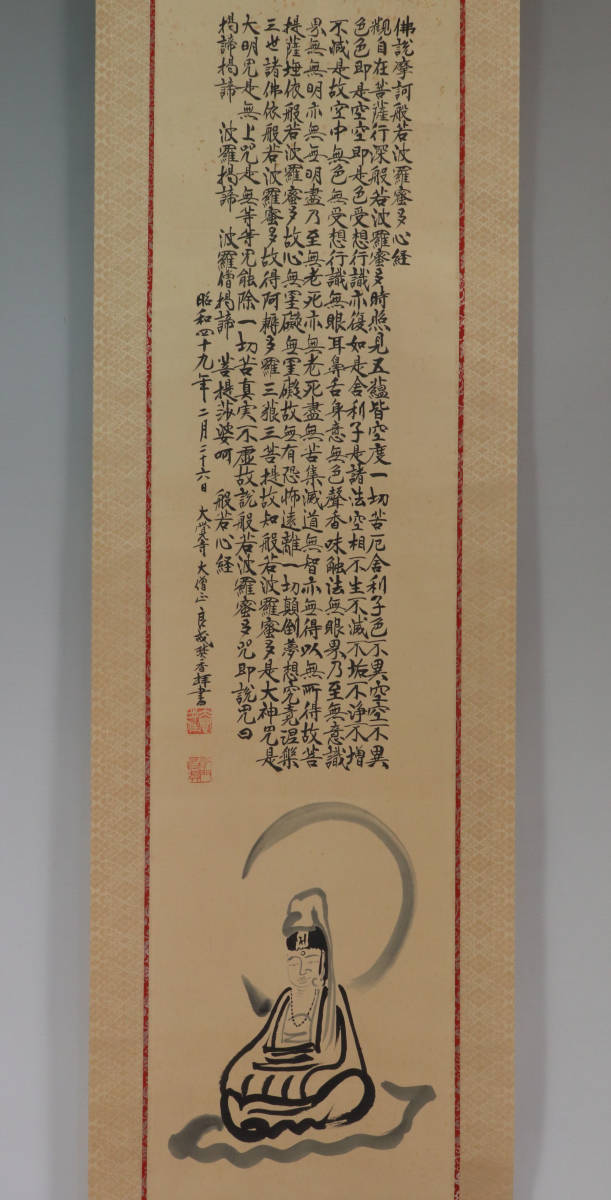 佛説摩訶般若波羅蜜多心経
觀自在菩薩行深般若波羅蜜多時照見五蘊皆空度一切苦厄舍利子色不異空空不異
色色即是空空即是色受想行識亦復如是舍利子是諸法空相不生不滅不垢不浄不増
不減是故空中無色無受想行識無眼耳鼻舌身意無色聲香味触法無眼界乃至無意識
界無無明亦無無明盡乃至無老死亦無老死盡無苦集滅道無智亦無得以無所得故菩
提薩埵依般若波羅蜜多故心無罣礙無罣礙故無有恐怖遠離一切顛倒夢想究竟涅槃
三世諸佛依般若波羅蜜多故得阿耨多羅三藐三菩提故知般若波羅蜜多是大神咒是
大明咒是無上咒是無等等咒能除一切苦真実不虚故説般若波羅蜜多咒即説咒曰
掲諦掲諦 波羅掲諦 波羅僧掲諦 菩提莎婆呵 般若心経
昭和四十九年二月二十六日 大覚寺 大僧正 拝書